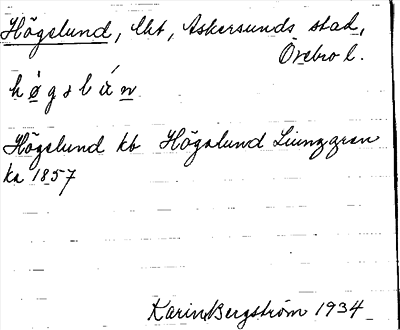 Högslund, lht, Askersunds stad,
Örebro l.
høgslún
Högslund kb Högslund Liungqren
ka 1857
Karin Bergström 1934